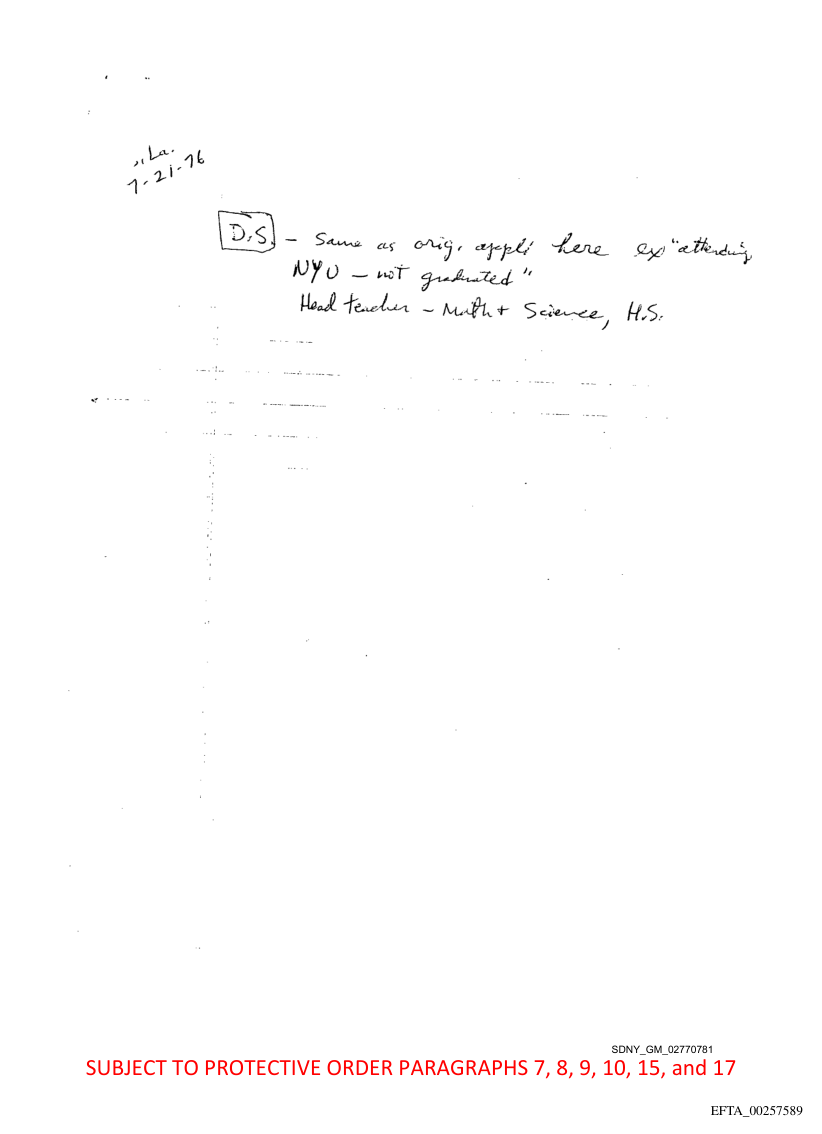 La.
7-21-76
D.S. - Same as orig. appl. here ex "attending
NYU - not graduated"
Head teacher - Math + Science, H.S.
SDNY_GM_02770781
SUBJECT TO PROTECTIVE ORDER PARAGRAPHS 7, 8, 9, 10, 15, and 17
EFTA_00257589